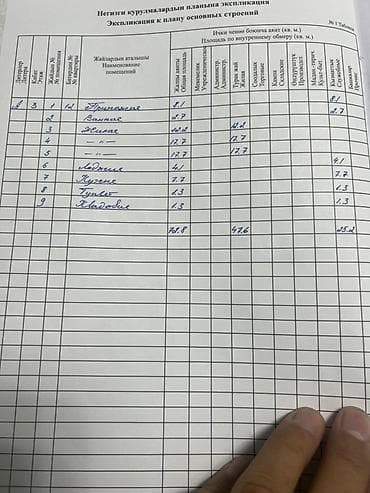 Негизги курулмалардын планына экспликация
Экспликация к плану основных строений
№ 1 Таблица
Литердер Литера
Кабат Этаж
Жайдын № № помещения
Батирдин № № квартиры
Жайлардын аталышы Наименование помещений
Ички ченөө боюнча аянт (кв. м.)
Площадь по внутреннему обмеру (кв. м.)
Жалпы аянты Общая площадь
Мекемелик Учрежденческие
Администр. Админстр.
Турак жай Жилая
Соодалык Торговые
Кампа Складские
Өндүрүштүк Производст.
Кызматтык Служебные
Башкалар Прочие
А 3 1 12 Прихожая 8.1 8.1
2 Ванная 2.7 2.7
3 Жилая 12.2 12.2
4 — " — 17.7 17.7
5 — " — 17.7 17.7
6 Лоджия 4.1 4.1
7 Кухня 7.7 7.7
8 Туалет 1.3 1.3
9 Кладовая 1.3 1.3
72.8 47.6 25.2